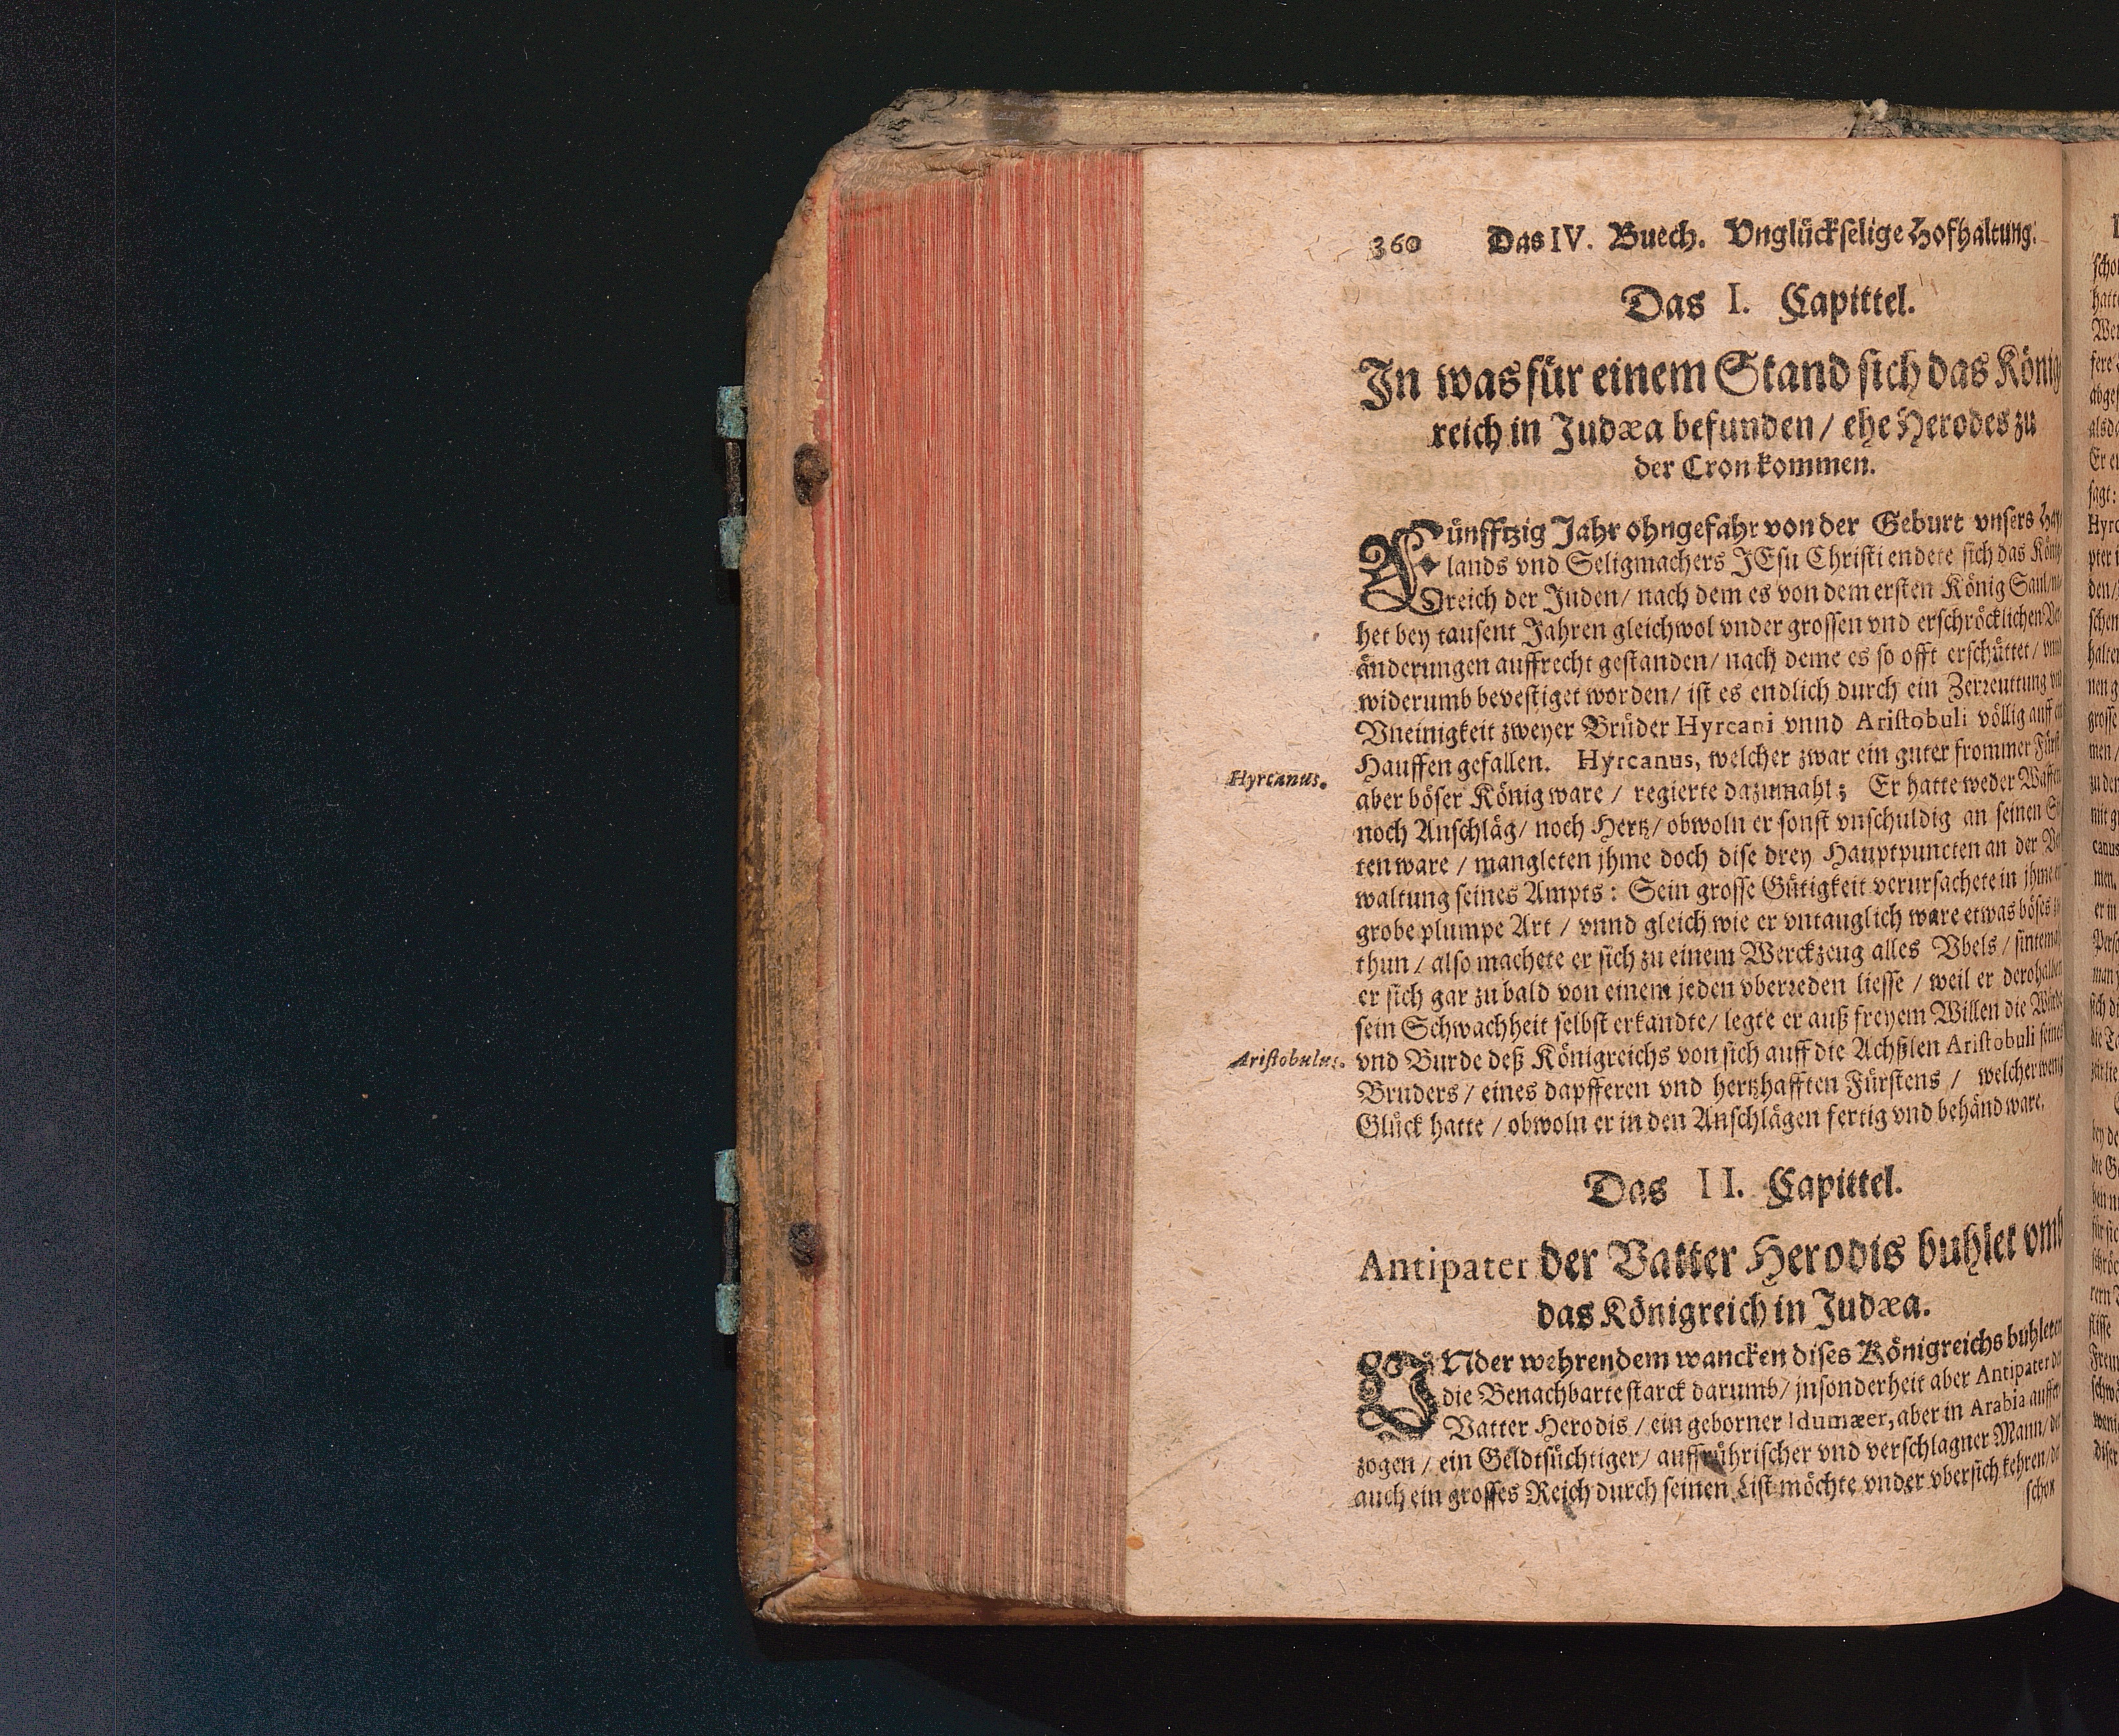 360 Das IV. Buech. Vnglückselige Hofhaltung.
Das I. Capittel.
In was für einem Stand sich das König
reich in Judæa befunden / ehe Herodes zu
der Cron kommen.
Fünfftzig Jahr ohngefahr von der Geburt vnsers
lands vnd Seligmachers JEsu Christi endete sich das König
reich der Juden / nach dem es von dem ersten König Saul
het bey tausent Jahren gleichwol vnder grossen vnd erschröcklichen
änderungen auffrecht gestanden / nach deme es so offt erschüttet /
widerumb bevestiget worden / ist es endlich durch ein Zerreuttung
Vneinigkeit zweyer Brüder Hyrcani vnnd Aristobuli völlig auff
Hauffen gefallen. Hyrcanus, welcher zwar ein guter frommer Fürst
Hyrcanus.
aber böser König ware / regierte dazumahl; Er hatte weder Waffen
noch Anschläg / noch Hertz / obwoln er sonst vnschuldig an seinen
ten ware / mangleten jhme doch dise drey Hauptpuncten an der
waltung seines Ampts: Sein grosse Gütigkeit verursachete in jhme
grobe plumpe Art / vnnd gleich wie er vntauglich ware etwas böses
thun / also machete er sich zu einem Werckzeug alles Vbels / sintemal
er sich gar zu bald von einem jeden vberreden liesse / weil er derohalben
sein Schwachheit selbst erkandte / legte er auß freyem Willen die Würde
Aristobulus.
vnd Burde deß Königreichs von sich auff die Achßlen Aristobuli seines
Bruders / eines dapfferen vnd hertzhafften Fürstens / welcher wenig
Glück hatte / obwoln er in den Anschlägen fertig vnd behänd ware.
Das II. Capittel.
Antipater der Vatter Herodis buhlet vmb
das Königreich in Judæa.
VNder wehrendem wancken dises Königreichs buhleten
die Benachbarte starck darumb / jnsonderheit aber Antipater
Vatter Herodis / ein geborner Idumæer, aber in Arabia auffer
zogen / ein Geldtsüchtiger / auffrührischer vnd verschlagner Mann /
auch ein grosses Reich durch seinen List möchte vnder vbersich kehren /
schon